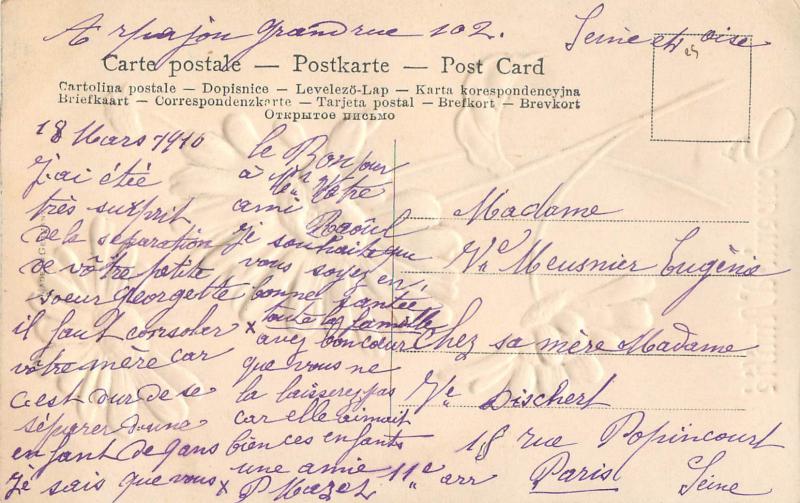 Arpajon grand rue 102. Seine et oise
Carte postale — Postkarte — Post Card
Cartolina postale – Dopisnice – Levelező-Lap – Karta korespondencyjna
Briefkaart – Correspondenzkarte – Tarjeta postal – Brefkort – Brevkort
Открытое письмо
18 Mars 1910
J'ai étée
très surprit
de la séparation
de vôtre petite
soeur Georgette
il faut consoler
vôtre mère car
c'est dur de se
séparer d'une
enfant de 9 ans
je sais que vous
x avez bon coeur
que vous ne
la laisserez pas
car elle aimait
bien ces enfants
une amie
P Mazet
le Bonjour
à Mr Votre
ami Raoûl
Je souhaite que
vous soyez en
bonne santée
toute la famille
Madame
Ve Meusnier Eugénie
Chez sa mère Madame
Ve Dischert
18 rue Popincourt
11e arr Paris Seine